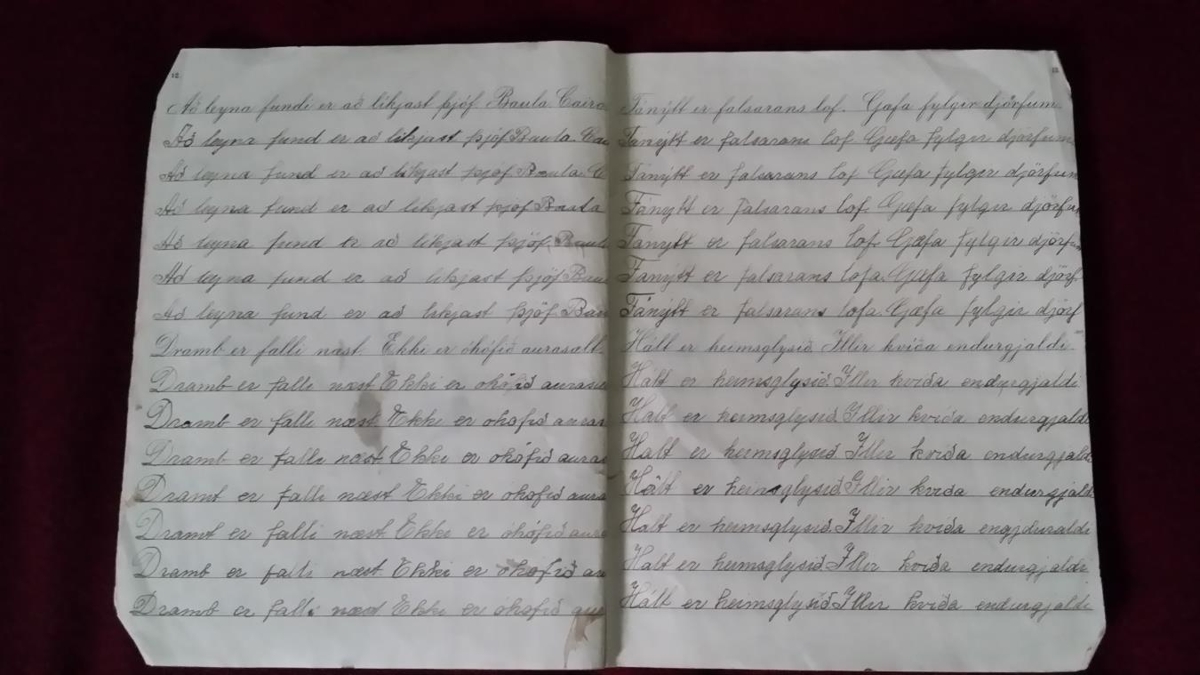 12.
Að leyna fundi er að líkjast þjóf Baula Cairo
Að leyna fund er að líkjast þjóf Baula Cai
Að leyna fund er að líkjast þjóf Baula C
Að leyna fund er að likjast þjóf Baula
Að leyna fund er að likjast þjöf Baul
Að leyna fund er að likjast þjóf Bau
Að leyna fund er að líkjast þjóf Bau
Dramb er falli næst. Ekki er óhófið aurasalt.
Dramb er falli næst Ekki er ohófið auras
Dramb er falli næst Ekki er ohofið auras
Dramb er falli næst Ekki er ohofið auras
Dramt er falli næst Ekki er ohofið aura
Dramt er falli næst Ekki er óhófið aura
Dramb er falli næst Ekki er ohofið au
Dramb er falli næst Ekki er óhofið aur
Fánýtt er falsarans lof. Gæfa fylgir djörfum.
Fanýtt er falsarans lof Gæfa fylgir djörfum
Fanýtt er falsarans lof Gæfa fylgir djörfum
Fanýtt er falsarans lof Gæfa fylgir djörfu
Fanýtt er falsarans lof Gæfa fylger djörf
Fanýtt er falsarans lofa Gæfa fylgir djörf
Fánýtt er falsarans lofa Gæfa fylgir djörf
Hált er heimsglysið Illir kviða endurgjaldi
Halt er heimsglysið Illir kviða endurgjaldi
Halt er heimsglysið Illir kviða endurgjaldi
Halt er heimsglysið Illir kviða endurgjald
Hált er heimsglysið Illir kviða endurgjald
Halt er heimsglysið Illir kviða engjduraldi
Halt er heimsglysið Illir kviða endurgjaldi
Hált er heimsglysið Illir kviða endurgjaldi